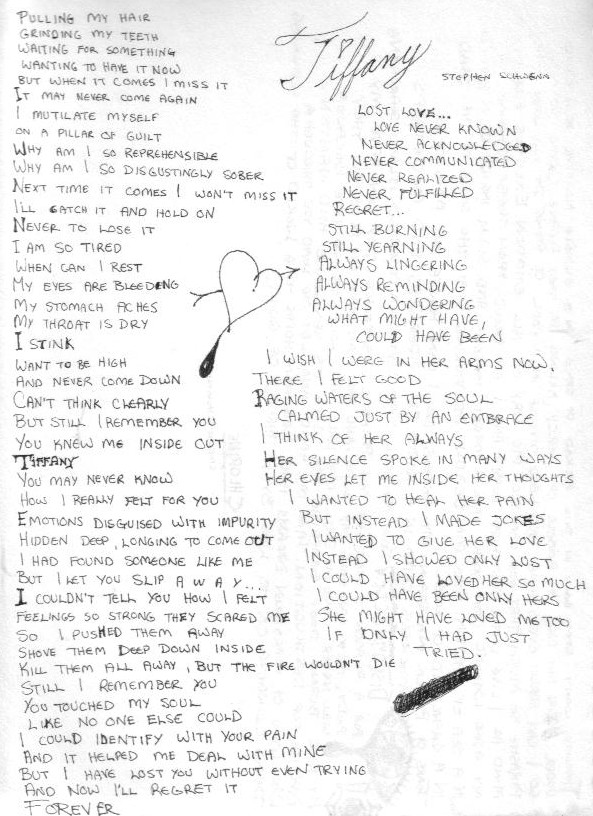 Tiffany
STEPHEN SCHWENN
PULLING MY HAIR
GRINDING MY TEETH
WAITING FOR SOMETHING
WANTING TO HAVE IT NOW
BUT WHEN IT COMES I MISS IT
IT MAY NEVER COME AGAIN
I MUTILATE MYSELF
ON A PILLAR OF GUILT
WHY AM I SO REPREHENSIBLE
WHY AM I SO DISGUSTINGLY SOBER
NEXT TIME IT COMES I WON'T MISS IT
I'LL CATCH IT AND HOLD ON
NEVER TO LOSE IT
I AM SO TIRED
WHEN CAN I REST
MY EYES ARE BLEEDING
MY STOMACH ACHES
MY THROAT IS DRY
I STINK
WANT TO BE HIGH
AND NEVER COME DOWN
CAN'T THINK CLEARLY
BUT STILL I REMEMBER YOU
YOU KNEW ME INSIDE OUT
TIFFANY
YOU MAY NEVER KNOW
HOW I REALLY FELT FOR YOU
EMOTIONS DISGUISED WITH IMPURITY
HIDDEN DEEP, LONGING TO COME OUT
I HAD FOUND SOMEONE LIKE ME
BUT I LET YOU SLIP A W A Y...
I COULDN'T TELL YOU HOW I FELT
FEELINGS SO STRONG THEY SCARED ME
SO I PUSHED THEM AWAY
SHOVE THEM DEEP DOWN INSIDE
KILL THEM ALL AWAY, BUT THE FIRE WOULDN'T DIE
STILL I REMEMBER YOU
YOU TOUCHED MY SOUL
LIKE NO ONE ELSE COULD
I COULD IDENTIFY WITH YOUR PAIN
AND IT HELPED ME DEAL WITH MINE
BUT I HAVE LOST YOU WITHOUT EVEN TRYING
AND NOW I'LL REGRET IT
FOREVER
LOST LOVE...
LOVE NEVER KNOWN
NEVER ACKNOWLEDGED
NEVER COMMUNICATED
NEVER REALIZED
NEVER FULFILLED
REGRET...
STILL BURNING
STILL YEARNING
ALWAYS LINGERING
ALWAYS REMINDING
ALWAYS WONDERING
WHAT MIGHT HAVE,
COULD HAVE BEEN
I WISH I WERE IN HER ARMS NOW.
THERE I FELT GOOD
RAGING WATERS OF THE SOUL
CALMED JUST BY AN EMBRACE
I THINK OF HER ALWAYS
HER SILENCE SPOKE IN MANY WAYS
HER EYES LET ME INSIDE HER THOUGHTS
I WANTED TO HEAL HER PAIN
BUT INSTEAD I MADE JOKES
I WANTED TO GIVE HER LOVE
INSTEAD I SHOWED ONLY LUST
I COULD HAVE LOVED HER SO MUCH
I COULD HAVE BEEN ONLY HERS
SHE MIGHT HAVE LOVED ME TOO
IF ONLY I HAD JUST
TRIED.